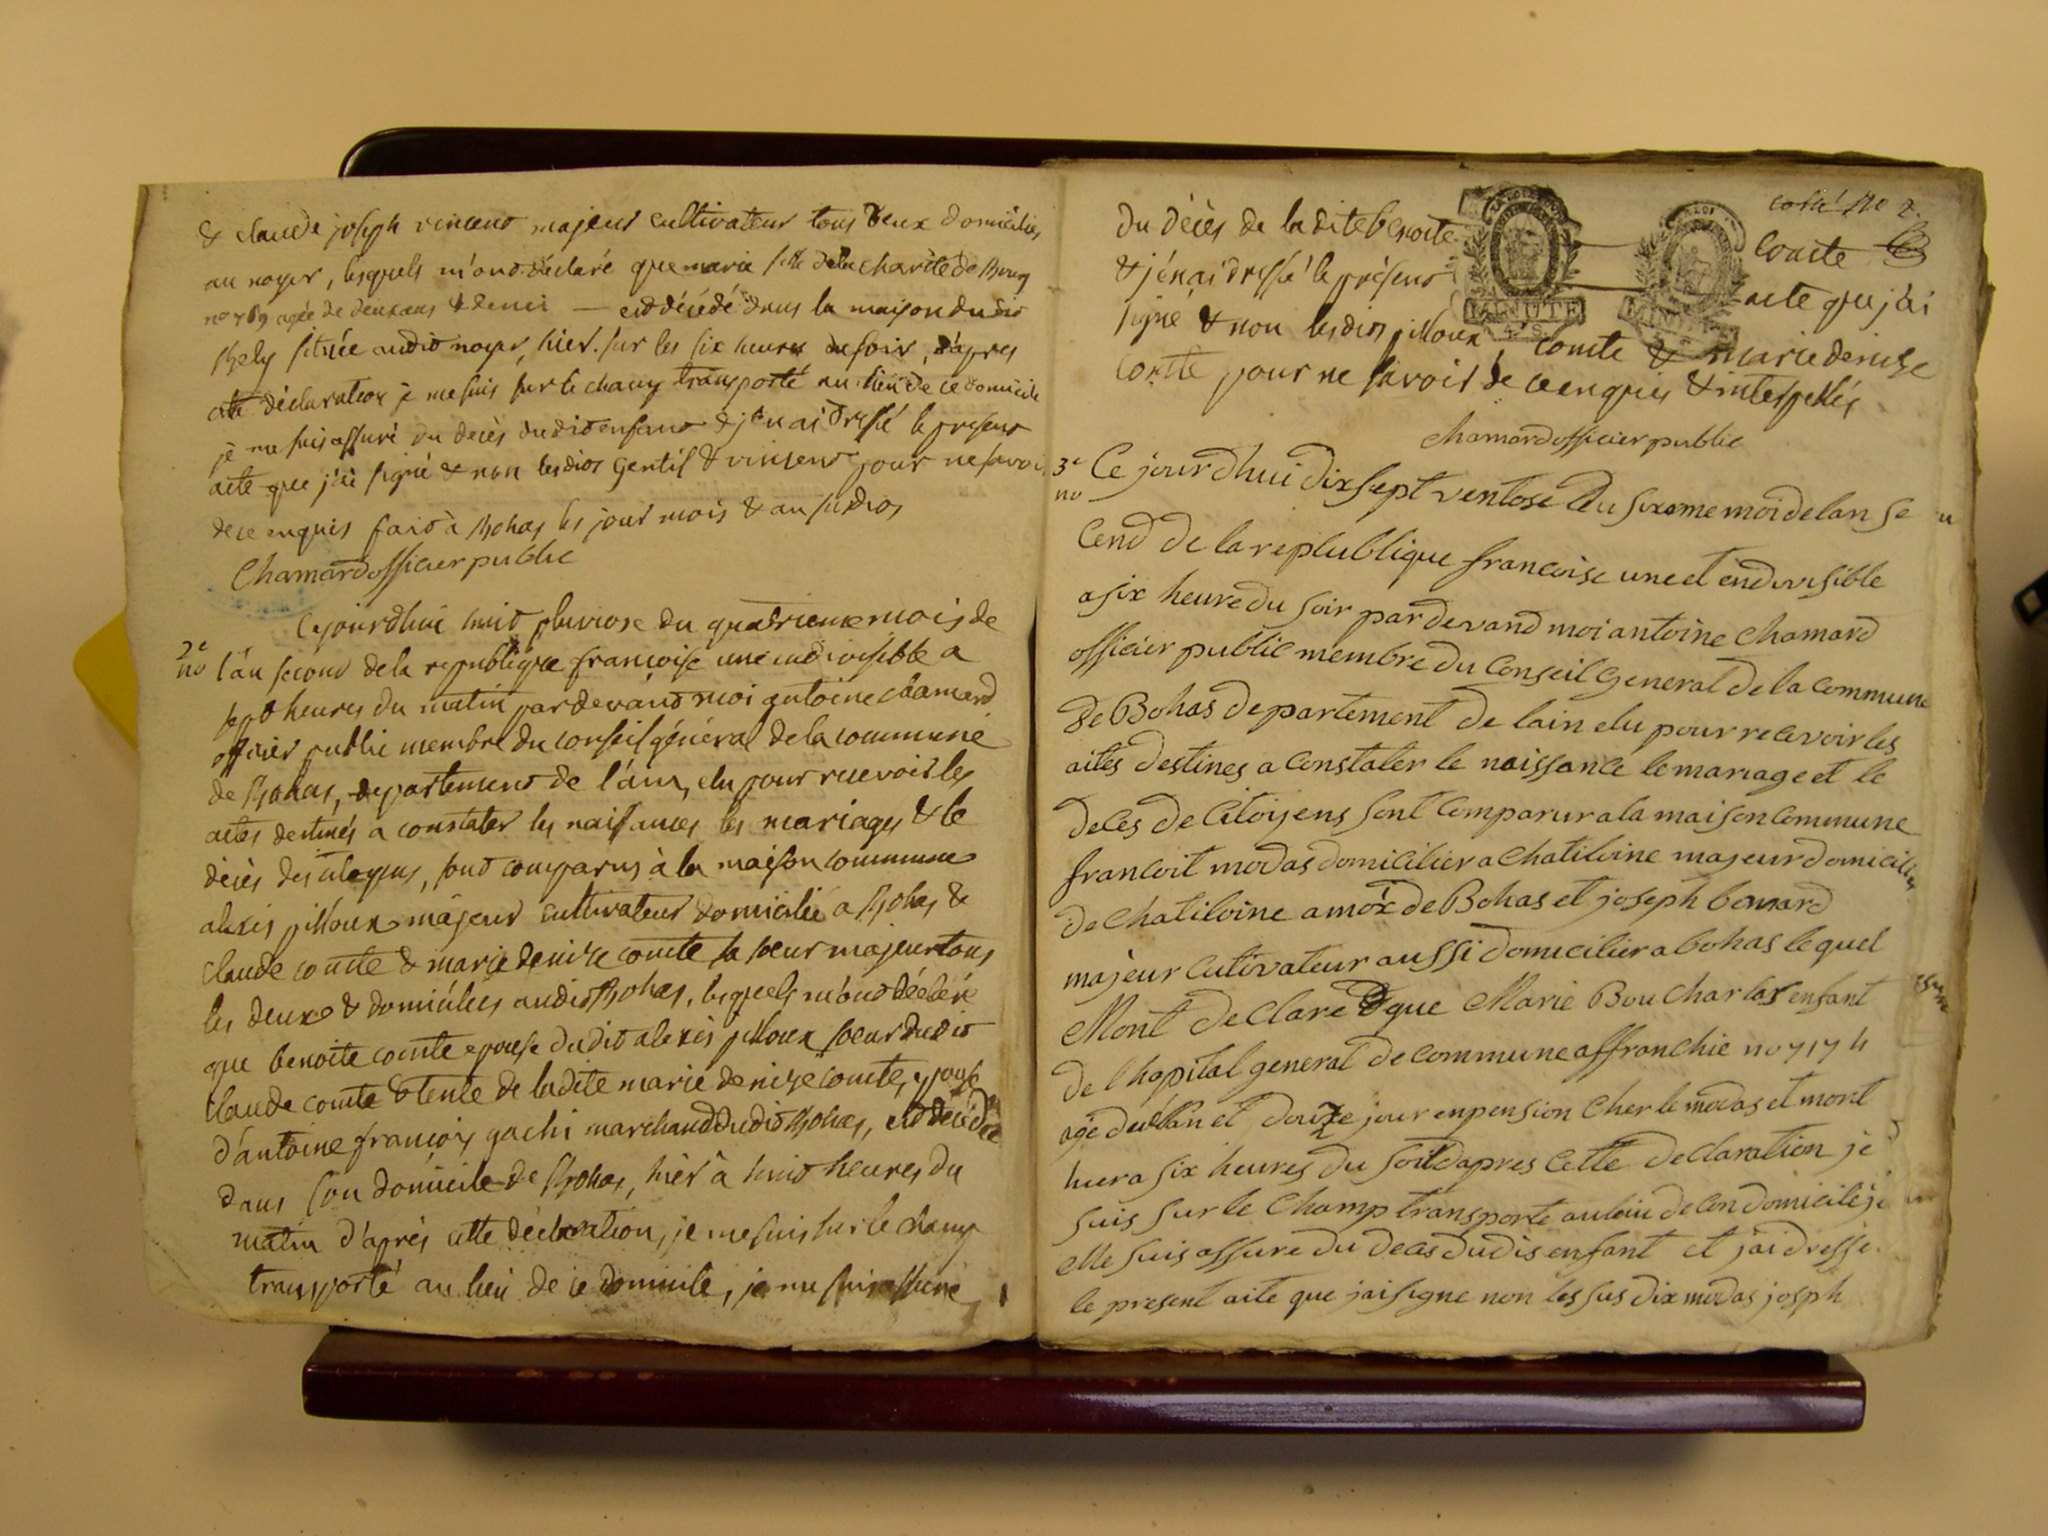 & claude joseph vincent majeur cultivateur tous deux domiciliés
au noyer, lesquels m'ont déclaré que marie fille de la charité de Bourg
no 769 agée de deux ans & demi — est décédé dans la maison dudit
située audit noyer, hier sur les six heures du soir, d'après
cette déclaration je me suis sur le champ transporté au lieu de ce domicile
je me suis assuré du décès dudit enfant & j'en ai dressé le present
acte que j'ai signé & non lesdits gentil & vincent pour ne savoir
de ce enquis fait à Bohas les jour mois & an susdits
Chamard officier public
Cejourdhui huit pluviose du quatrieme mois de
2e
no
l'an second de la republique françoise une indivisible a
sept heures du matin par devant moi antoine chamard
officier public membre du conseil général de la commune
de Bohas, departement de l'ain, elu pour recevoir les
actes destinés a constater les naissances les mariages & le
décès des citoyens, sont comparus à la maison commune
alexis pilloux majeur cultivateur domicilié a Bohas &
claude comte & marie denize comte sa soeur majeur tous
les deux & domiciliés audit Bohas, lesquels m'ont déclaré
que benoite comte epouse dudit alexis pilloux soeur dudit
claude comte & tente de ladite marie denize comte, epouse
d'antoine françois gachi marchand dudit Bohas, est décédée
dans son domicile de Bohas, hier à huit heures du
matin d'après cette déclaration, je me suis sur le champ
transporté au lieu de ce domicile, je me suis assuré
cotté no 2.
du décès de la dite benoite comte
& j'en ai dressé le présent acte que j'ai
signé & non lesdits pilloux comte & marie denize
comte pour ne savoir de ce enquis & interpellés
MINUTE
4. S.
MINUTE
chamard officier public
3e
no
Ce jourdhui dix sept ventose du sixeme moi de lan se
cend de la replublique francoise une et endivisible
a six heure du soir par devand moi antoine chamard
officier public membre du Conseil General de la commune
de Bohas departement de lain elu pour recevoir les
aites destines a Constater le naissance le mariage et le
deces de Citoyens sont Comparur a la maison Commune
francoit modas domicilier a chatiloine majeur domicilier
de chatiloine a moix de Bohas et joseph benard
majeur Cutivateur aussi domicilier a bohas le quel
Mont declare que Marie Boucharlas enfant
de l hopital general de commune affranchie no 7174
age de lan et douze jour en pension Cher le modas et mort
hier a six heures du soir dapres Cette declaration je
suis sur le Champ transporte au lieu de Con domicile je
me suis assure du deces dudis enfant et jai dresse
le present aite que jai signe non les sus dix modas josph